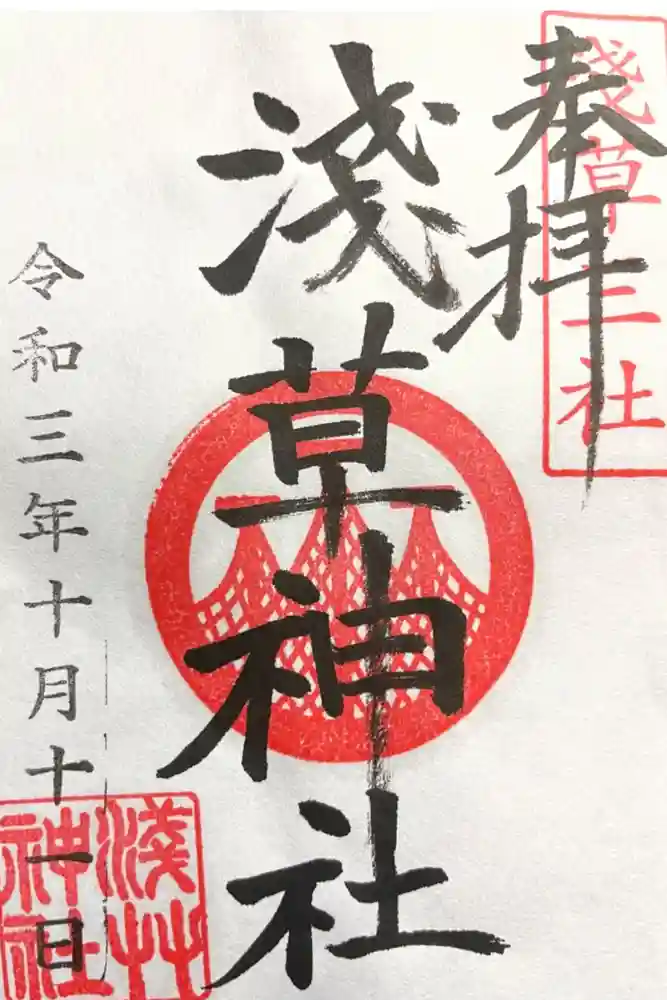 奉拝
淺草三社
淺草神社
令和三年十月十一日
淺草神社